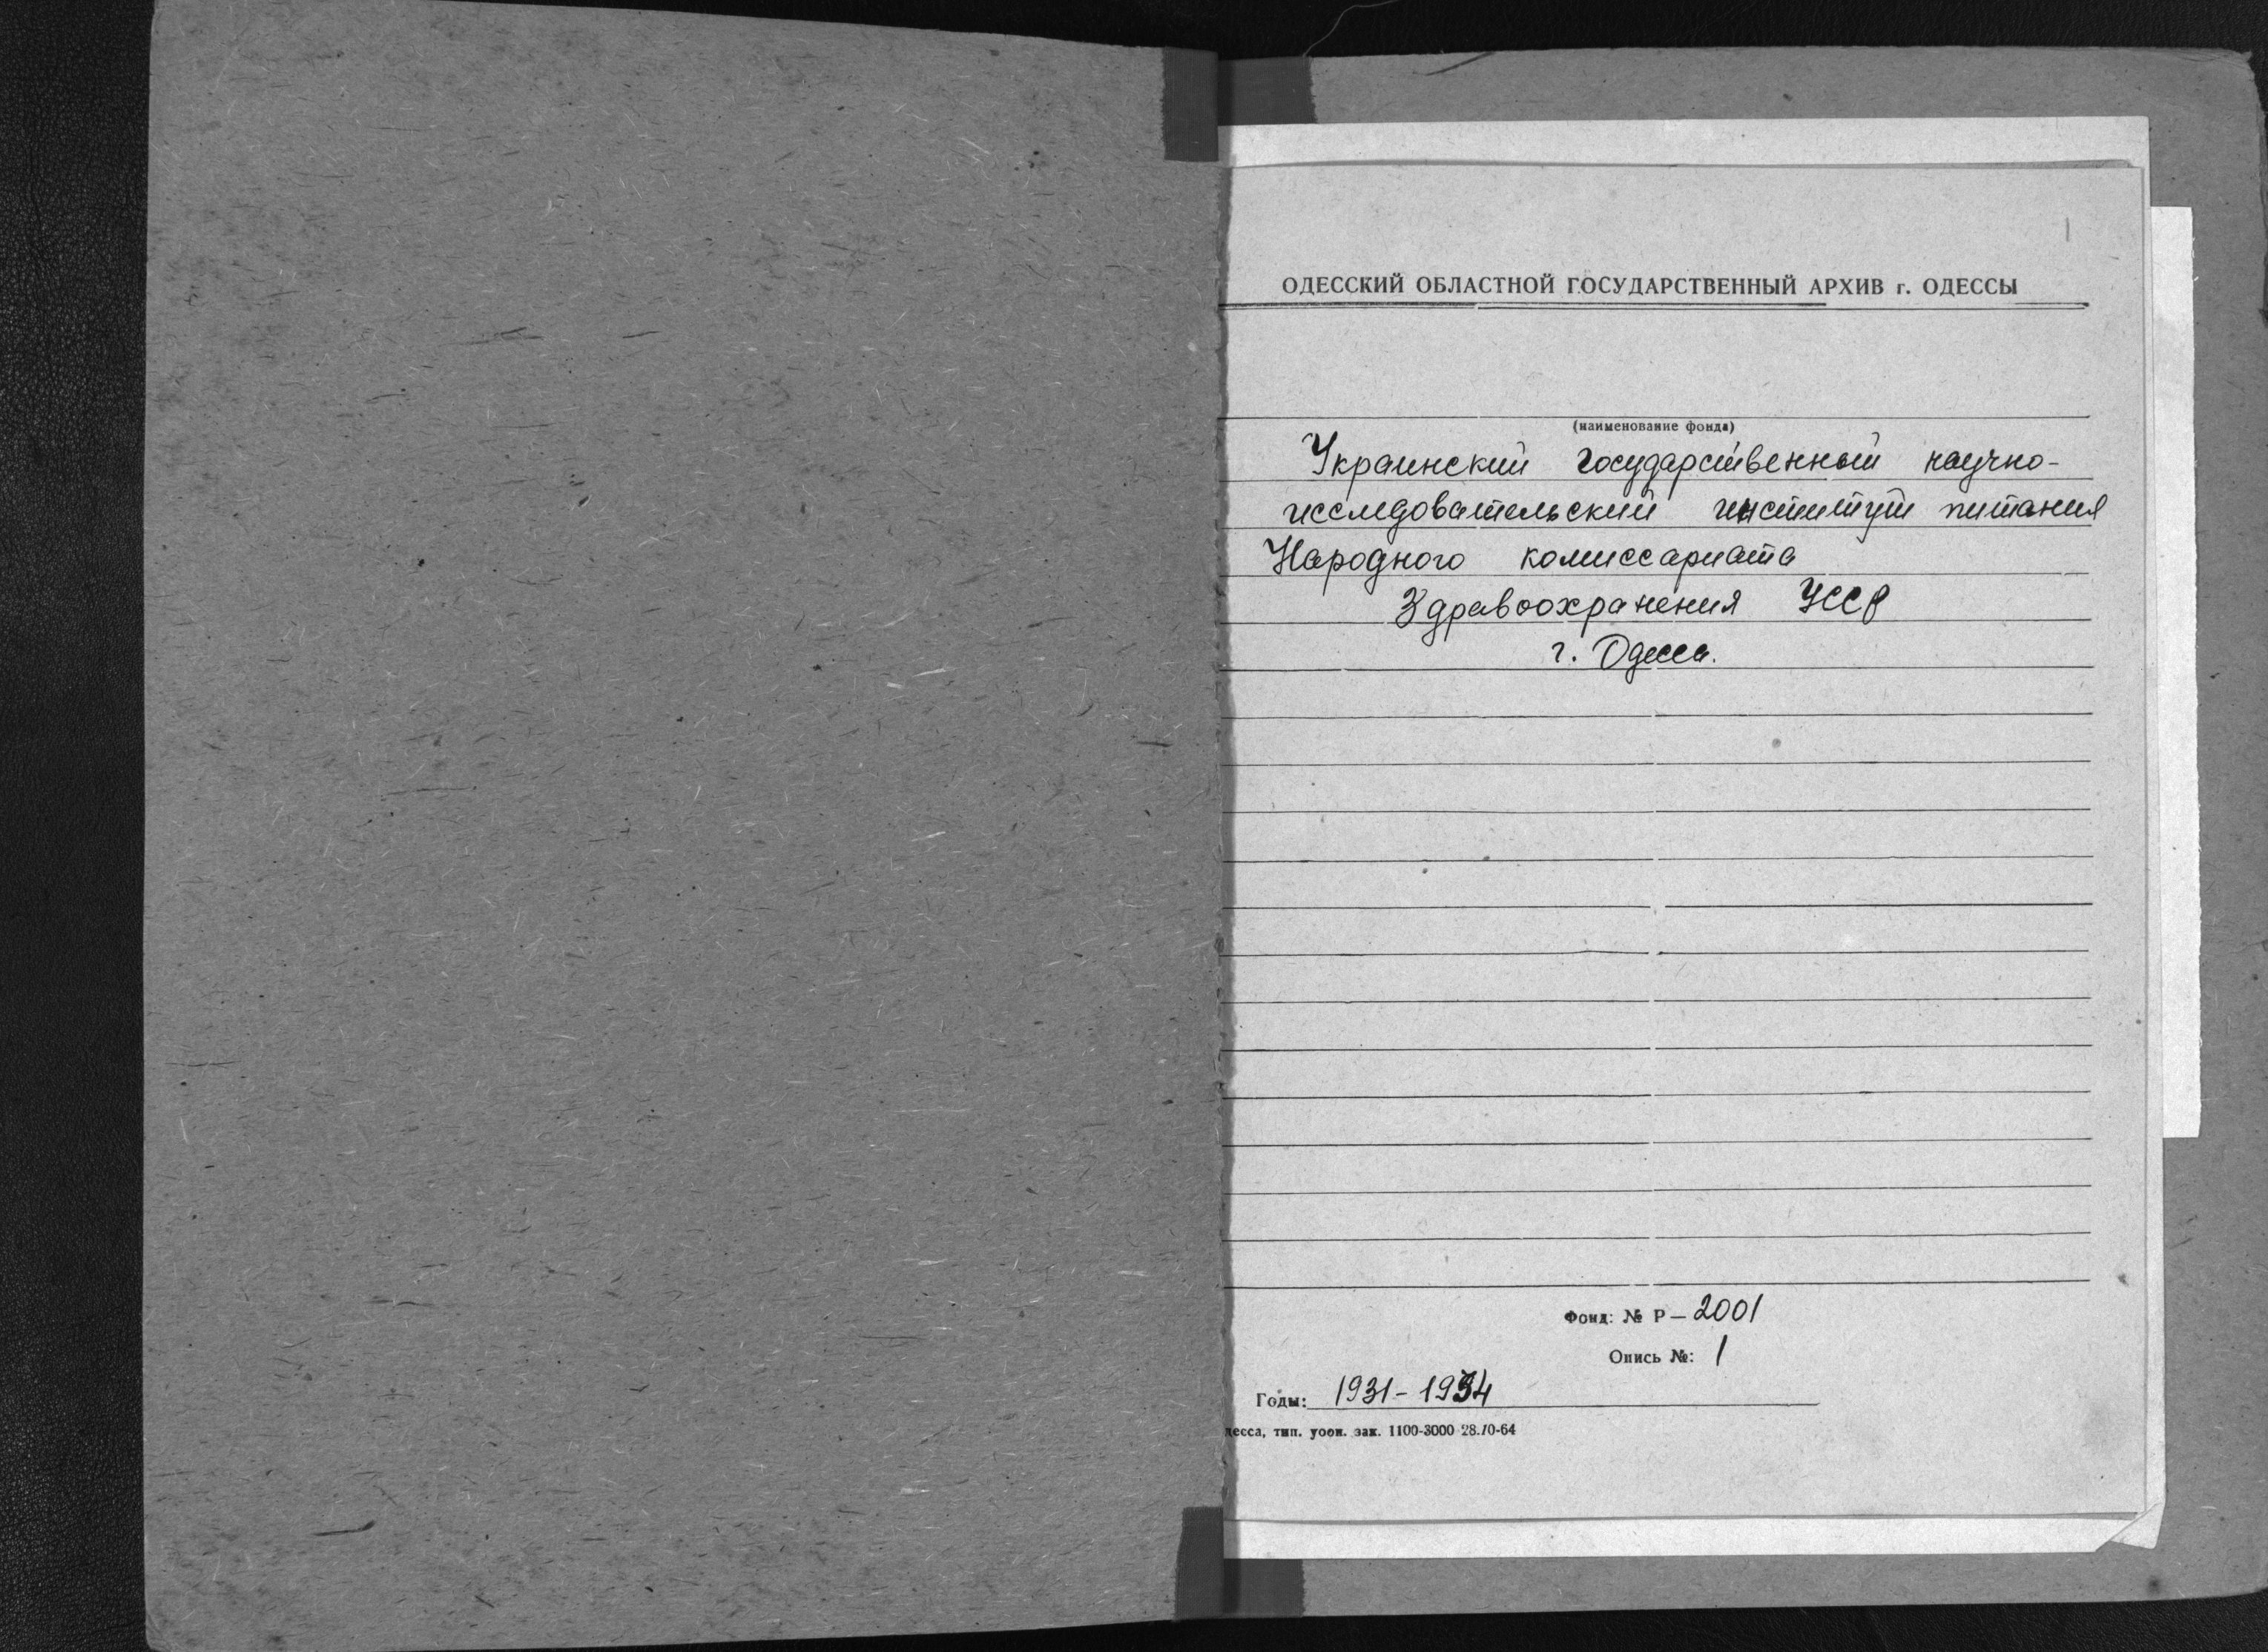 1
ОДЕССКИЙ ОБЛАСТНОЙ ГОСУДАРСТВЕННЫЙ АРХИВ г. ОДЕССЫ
(наименование фонда)
Украинский государственный научно-
исследовательский институт питания
Народного комиссариата
Здравоохранения УССР
г. Одесса.
Фонд: № Р— 2001
Опись №: 1
Годы: 1931 - 1934
десса, тип. уоои. зак. 1100-3000 28.10-64